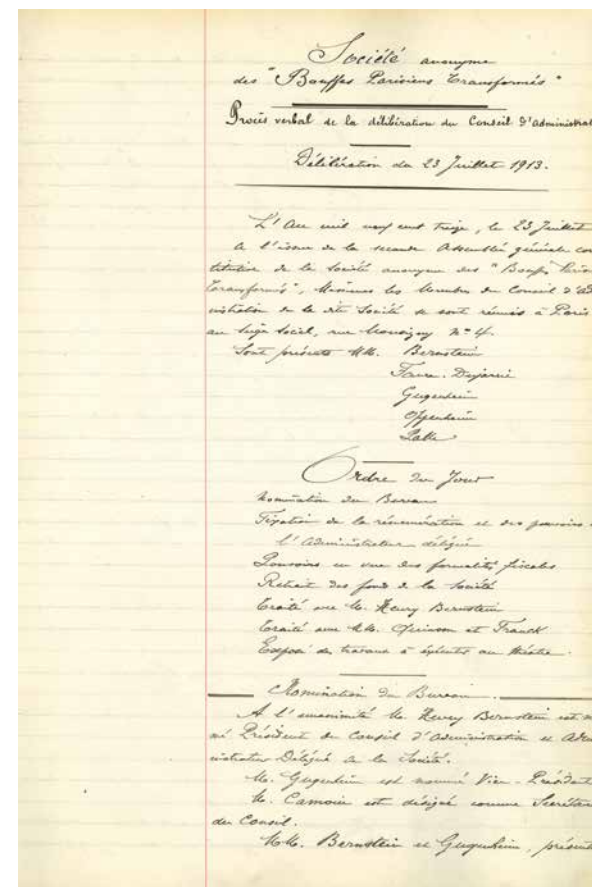 Société anonyme
des "Bouffes Parisiens Transformés"
Procès verbal de la délibération du Conseil d'Administrat
Délibération du 23 Juillet 1913.
L'An mil neuf cent treize, le 23 Juillet
à l'issue de la seconde Assemblée générale cons
titutive de la Société anonyme des "Bouffes Paris
Transformés", Messieurs les Membres du Conseil d'Ad
inistration de la dite Société se sont réunis à Paris
au Siège social, rue Monsigny N° 4.
Sont présents MM. Bernstein
Faure-Dujarric
Gugenheim
Oppenheim
Ordre du Jour
Nomination du Bureau
Fixation de la rémunération et des pouvoirs
l'Administrateur délégué
Pouvoirs en vue des formalités fiscales
Retrait des fonds de la Société
Traité avec M. Henry Bernstein
Traité avec MM. Quinson et Franck
Exposé des travaux à exécuter au théâtre.
Nomination du Bureau.
A l'unanimité M. Henry Bernstein est n
né Président du Conseil d'Administration et Adm
inistrateur Délégué de la Société.
M. Gugenheim est nommé Vice-Président
M. Camoin est désigné comme Secrétaire
du Conseil.
MM. Bernstein et Gugenheim, présents